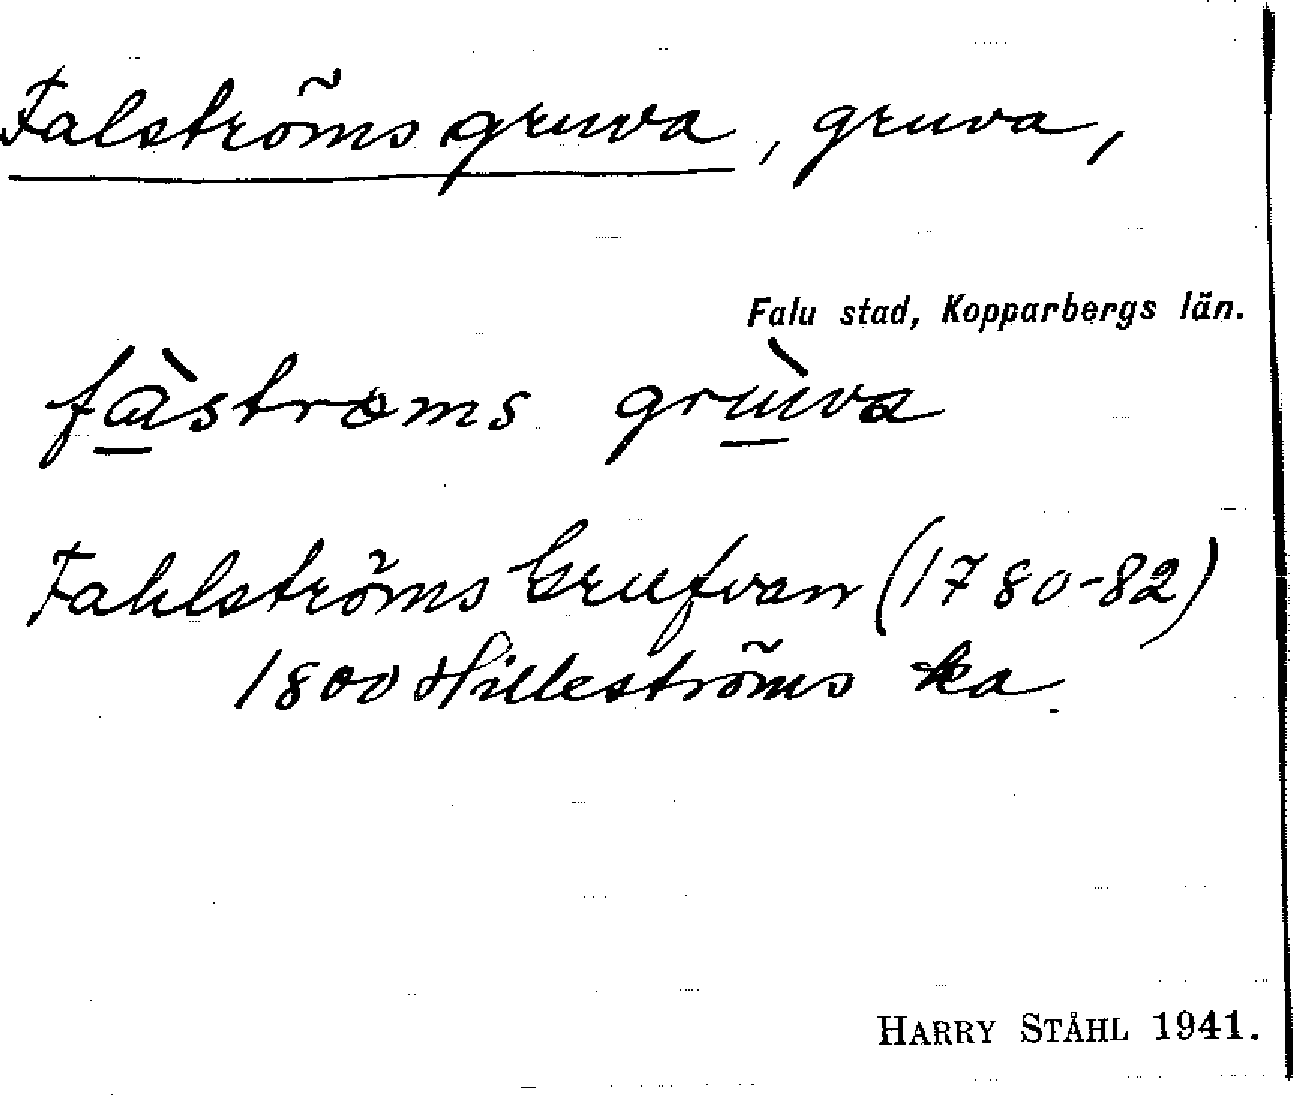 Falströms gruva, gruva,
Falu stad, Kopparbergs län.
fàstrøms grùva
Fahlströms Grufvan (1780-82)
1800 Hilleströms ka
HARRY STÅHL 1941.